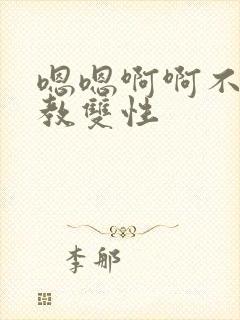 嗯嗯啊啊不
教雙性
李郍